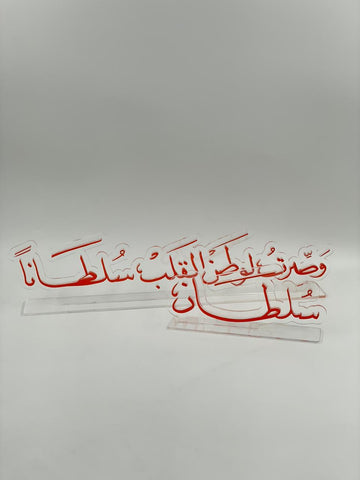 وَصِّرتُ لِوَطَنْ القَلبْ سُلطَاناً
سُلطان